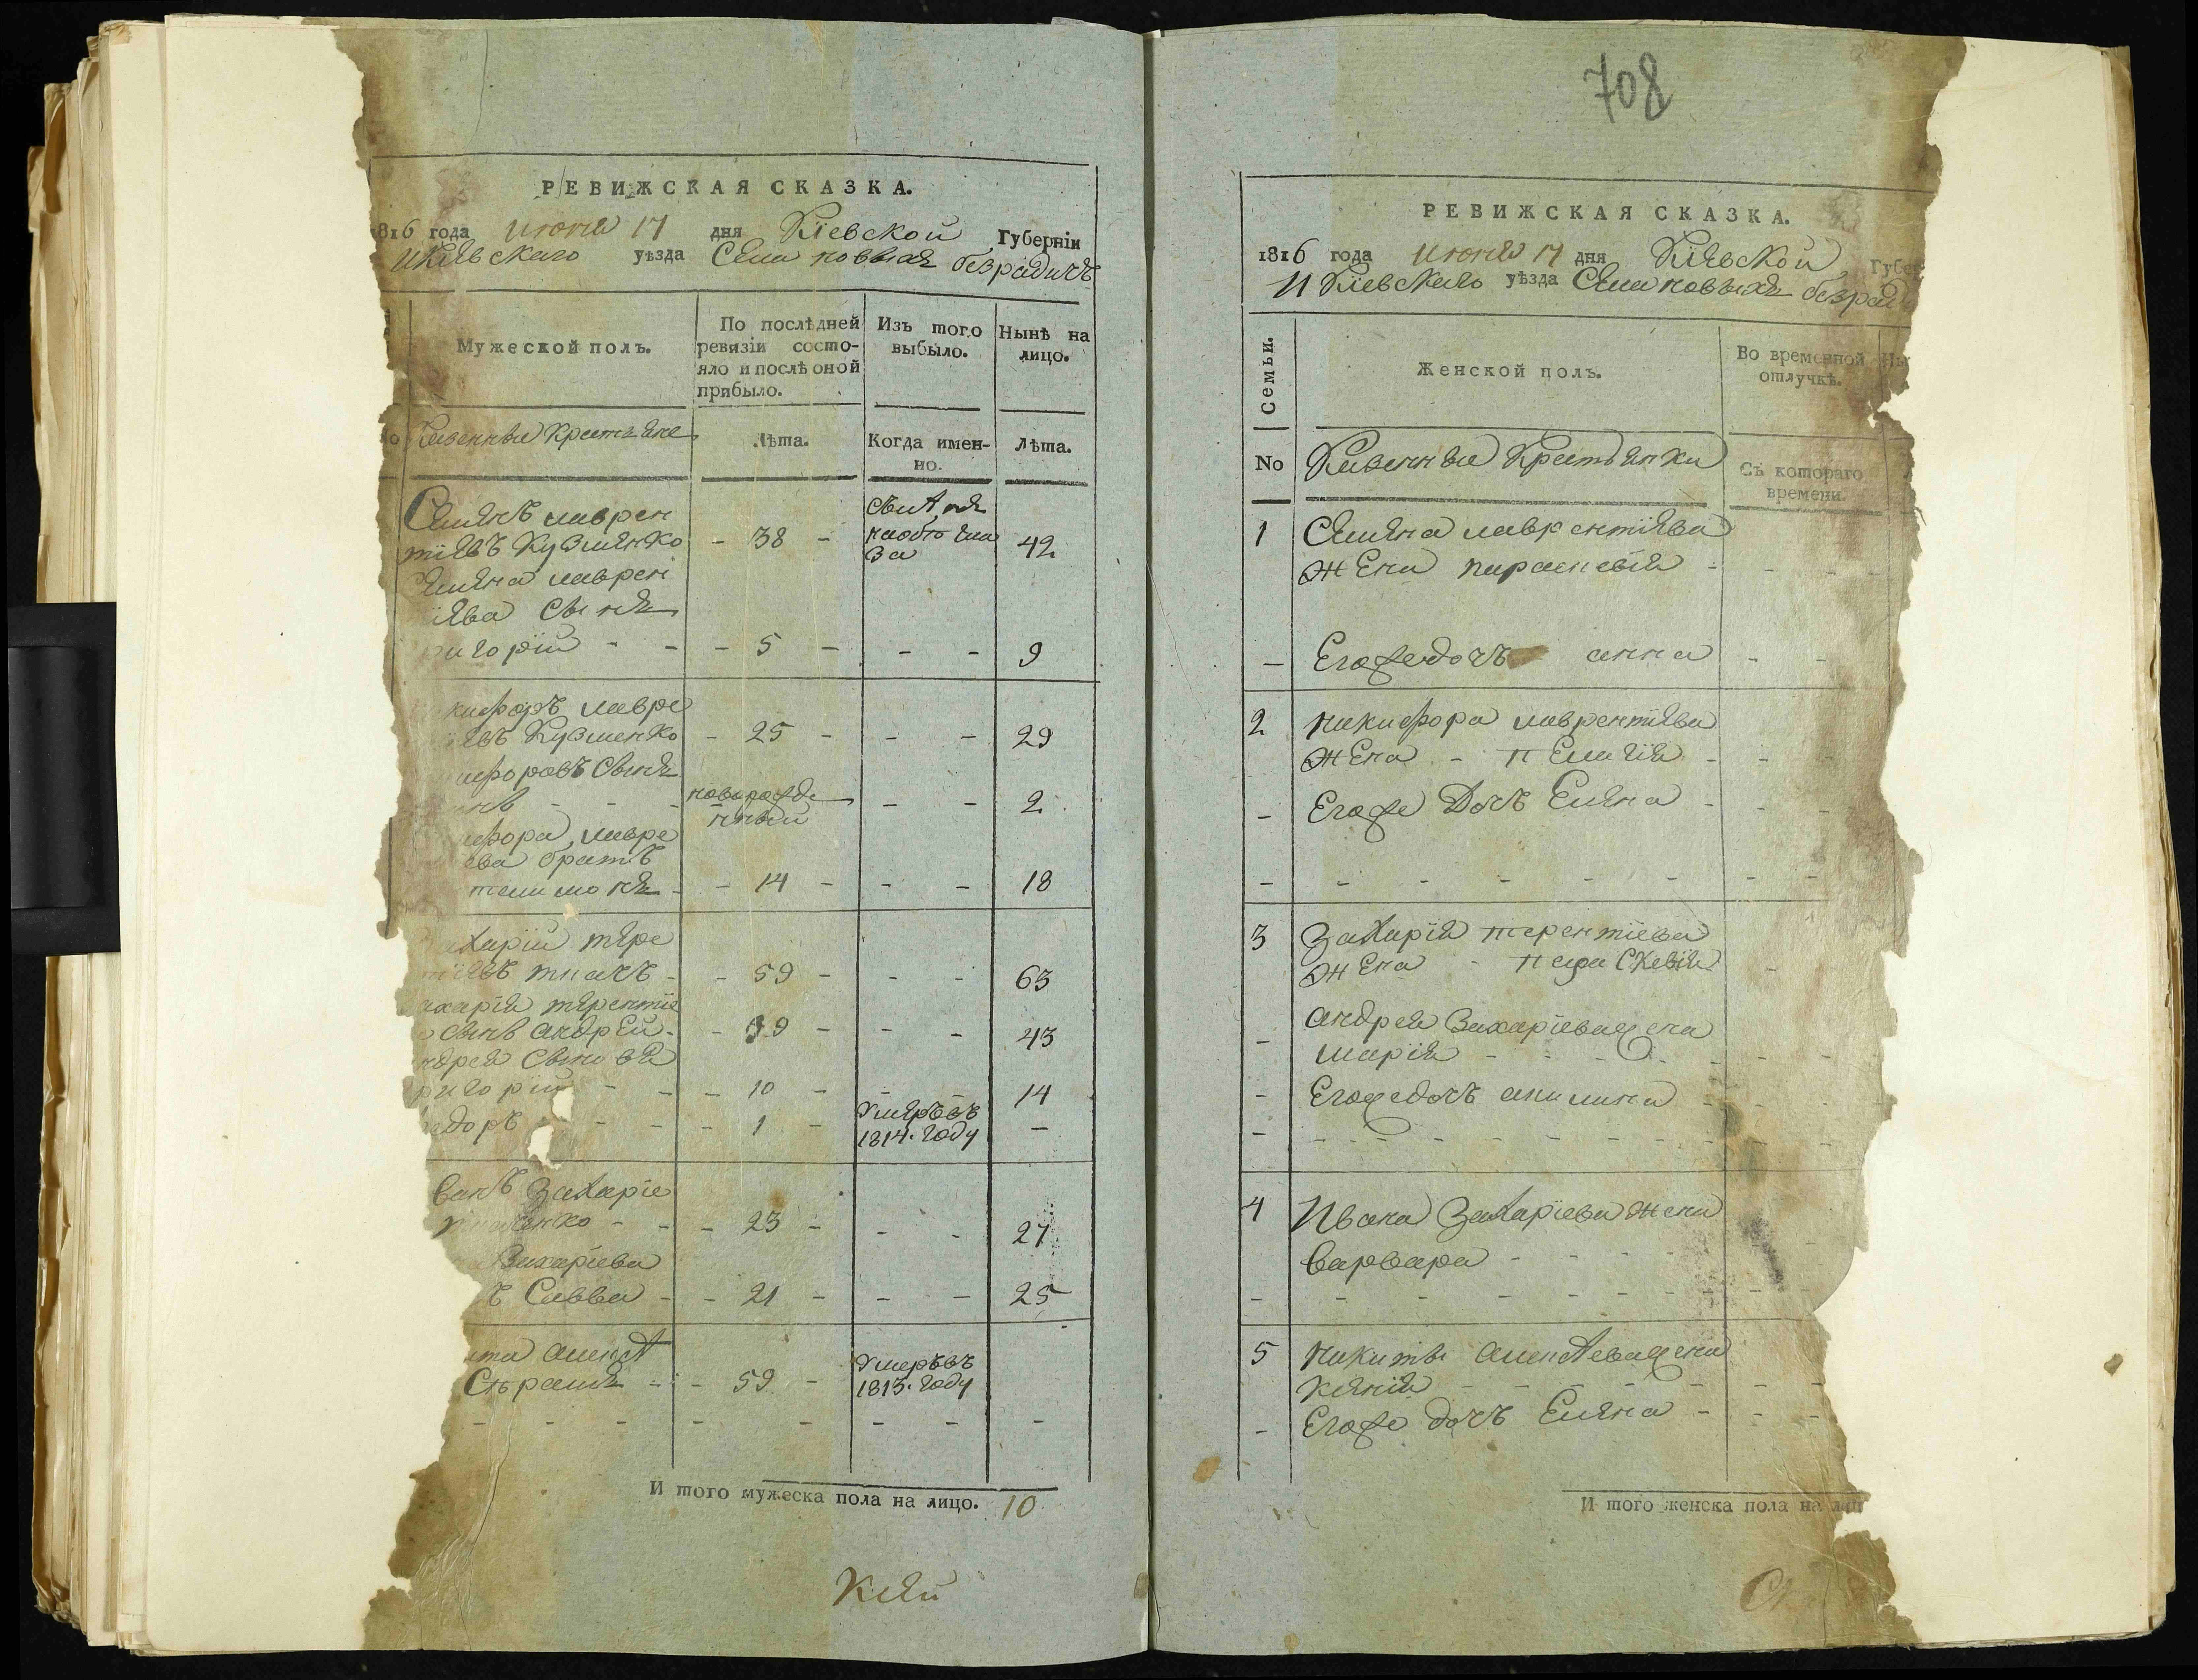 РЕВИЖСКАЯ СКАЗКА.
1816 года июня 17 дня Кіевской Губерніи
И Кіевскаго уѣзда Села новыхъ безрадичъ
Мужеской полъ.
По послѣдней
ревизіи состо-
яло и послѣ оной
прибыло.
Изъ того
выбыло.
Нынѣ на
лицо.
Казенныи крестьяне
Лѣта.
Когда имен-
но.
Лѣта.
Семенъ лаврен
тіевъ Кузменко - 38 - 42
Семена лаврен
тіева сынъ
ригорій - - - 5 - - - 9
кифоръ лавре
іевъ Кузменко - 25 - - - 29
ифоровъ сынъ
нъ - - - новорожде - - 2
нный
ифора лавре
ева братъ
телимонъ - - 14 - - - 18
Захарій тере
тіевъ ткачъ - - 59 - - - 63
ахарія терентіе
сынъ андрей - - 39 - - - 43
ндрея сыновя
ригорій - - - 10 - - - 14
едоръ - - - 1 - Умеръ въ
1814. году -
ванъ Захаріе
ткаченко - - - 23 - - - 27
Захаріева
ъ Савва - - 21 - - - 25
ита алексѣ
- 59 - Умеръ въ
1813. году
- - - - - - - -
И того мужеска пола на лицо. 10
708
РЕВИЖСКАЯ СКАЗКА.
1816 года июня 17 дня Кіевской Губер
И Кіевскаго уѣзда Села новыхъ безради
Семьи.
Женской полъ.
Во временной
отлучкѣ.
Ны
No
Казенныи Крестьянки
Съ котораго
времени.
1 Семена лаврентіева
жена параскевія - - -
- Егоже дочъ анна - -
2 никифора лаврентіева
жена - пелагія - - -
- Егоже Дочъ Елена - - -
- - - - - - - - -
3 Захарія терентіева
жена - параскевія -
- андрея Захаріева жена
марія - - - - - -
- Егоже дочъ акилина - -
- - - - - - - - - -
4 Ивана Захаріева жена
варвара - - - -
- - - - - - - - -
5 никиты алексѣева жена
ксенія - - - - - -
- Егоже дочъ Елена - - -
И того женска пола на лиц